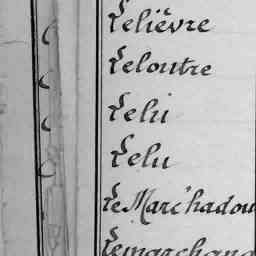 Lelièvre
Leloutre
Lelu
Lelu
LeMarc'hadou
Lemarchand